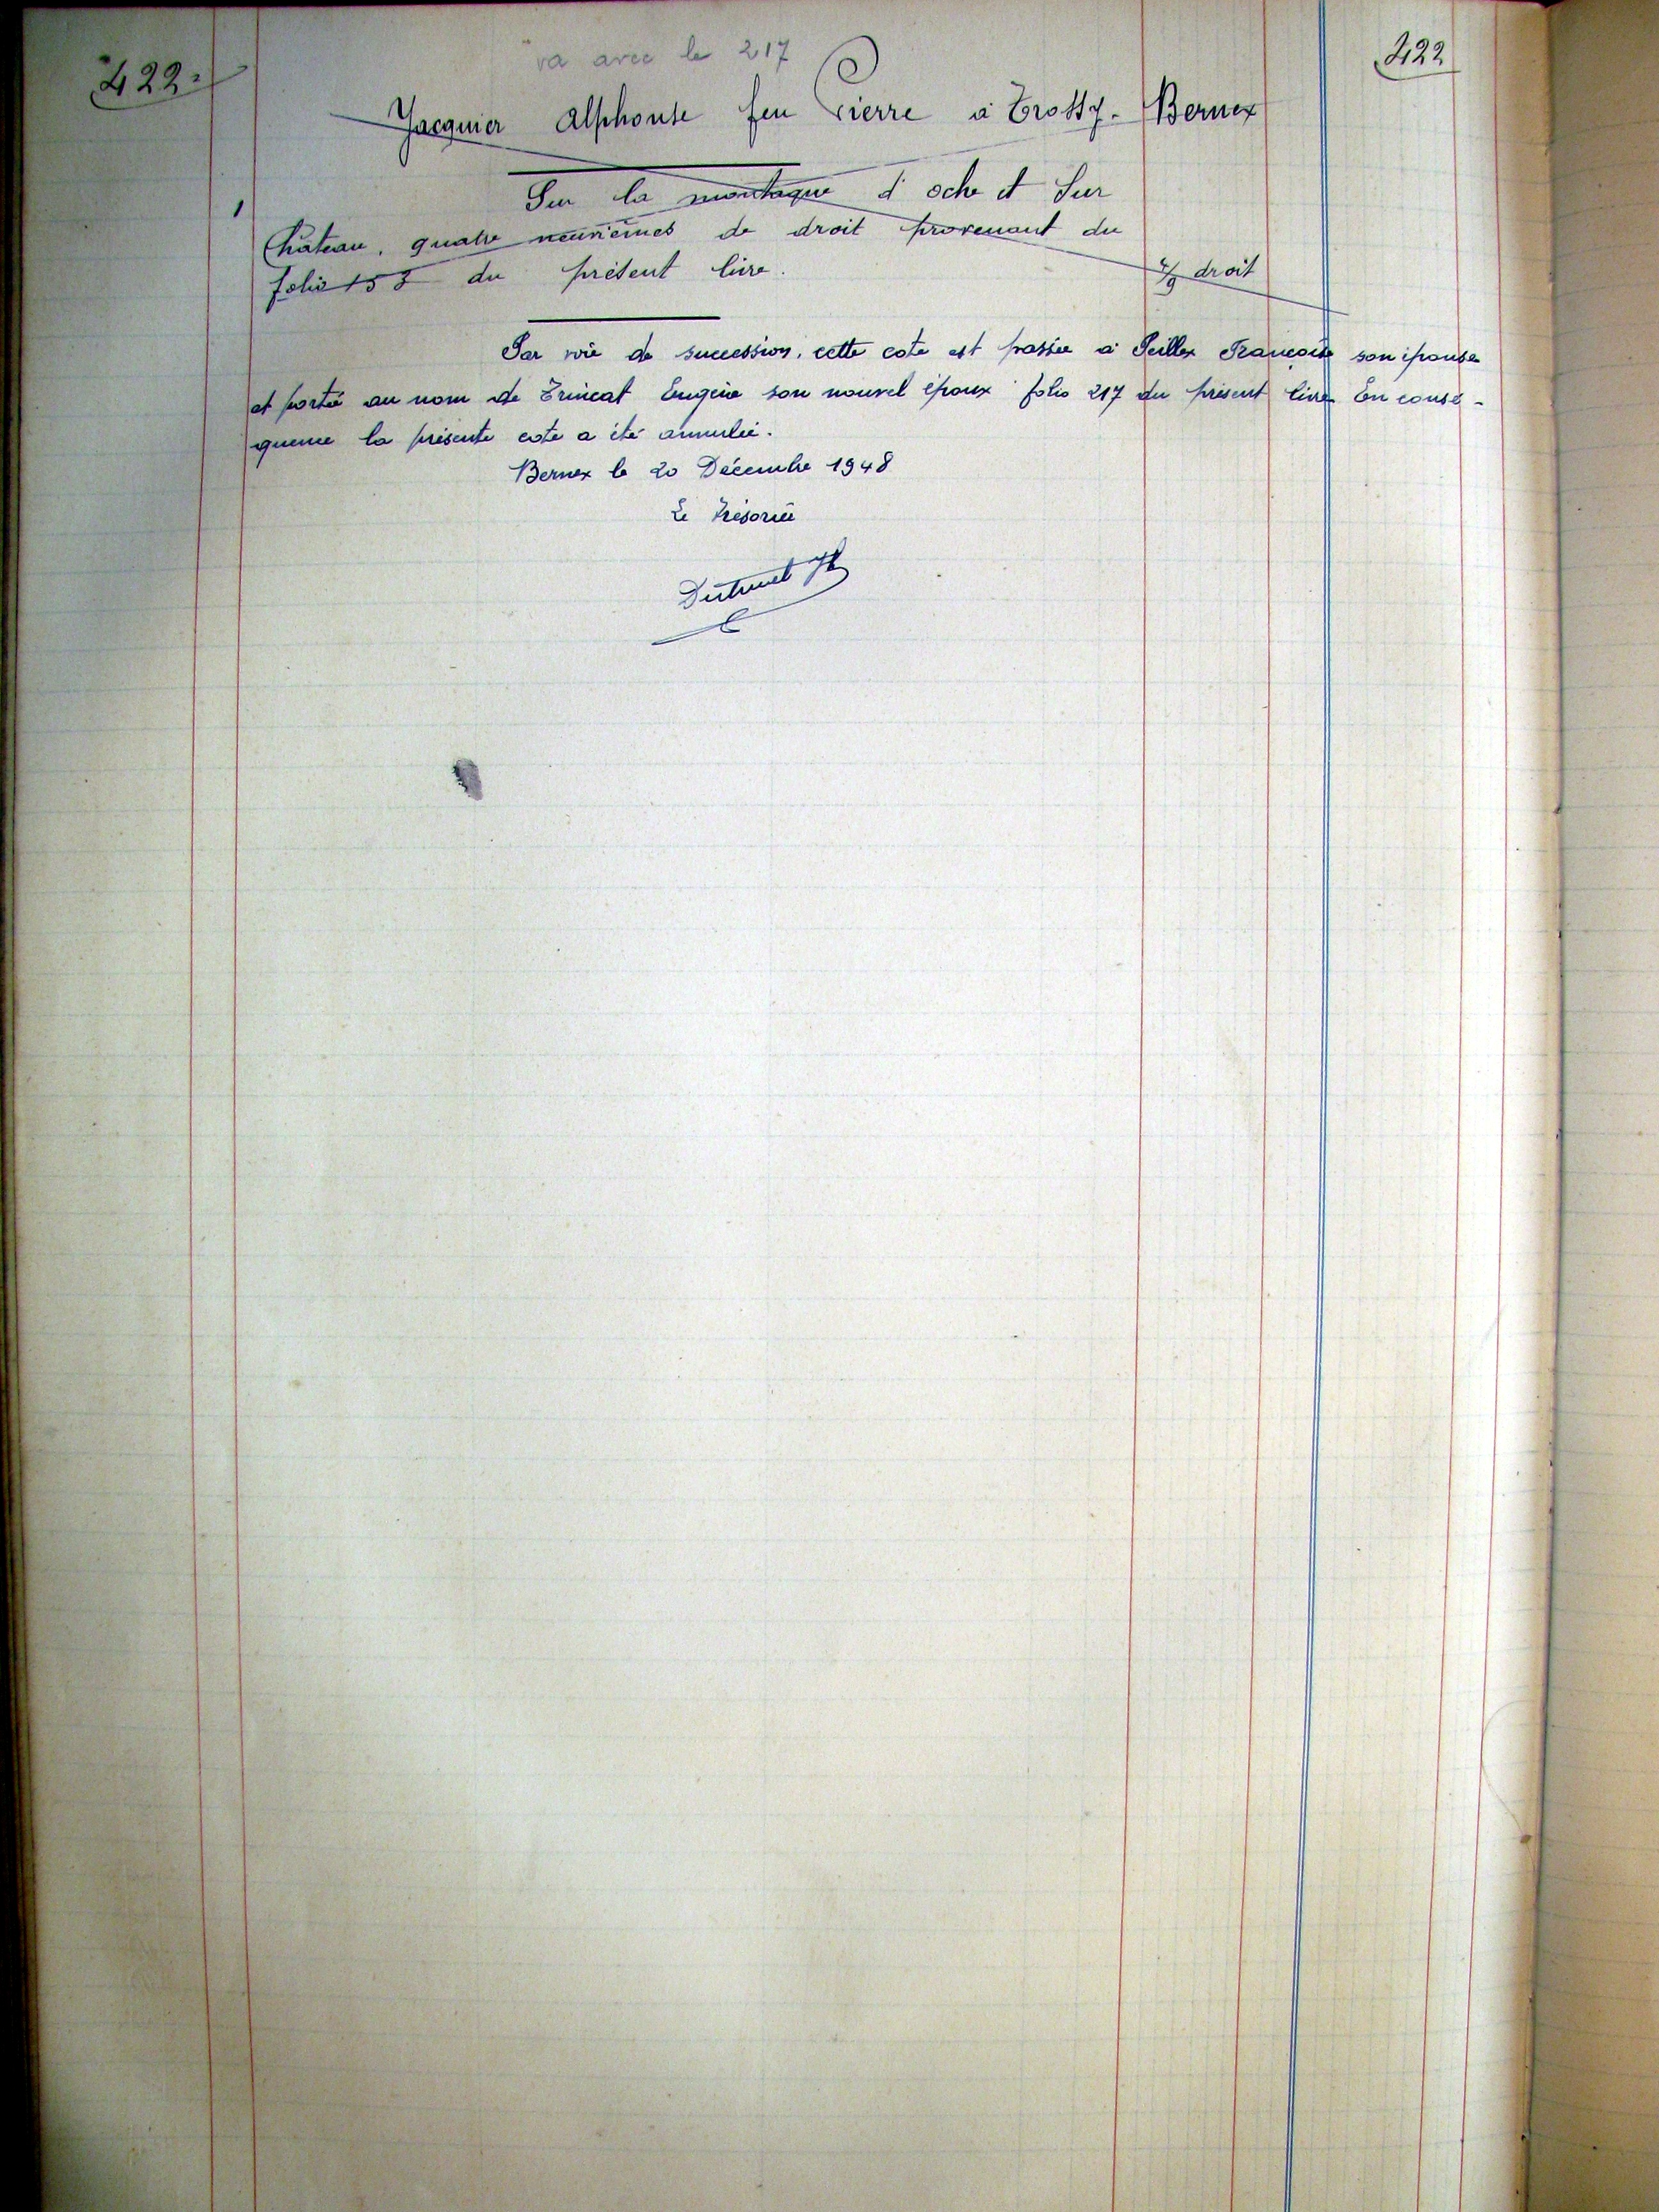 va avec le 217
422
422
Jacquier Alphonse feu Pierre à Trossy - Bernex
Sur la montagne d'oche et Sur
1
Château, quatre neuvièmes de droit provenant du
folio 153 du présent livre.
4/9 droit
Par voie de succession, cette cote est passée à Peillex Françoise son épouse
et portée au nom de Trincat Eugène son nouvel époux folio 217 du présent livre En consé-
quence la présente cote a été annulée.
Bernex le 20 Décembre 1948
Le Trésorier